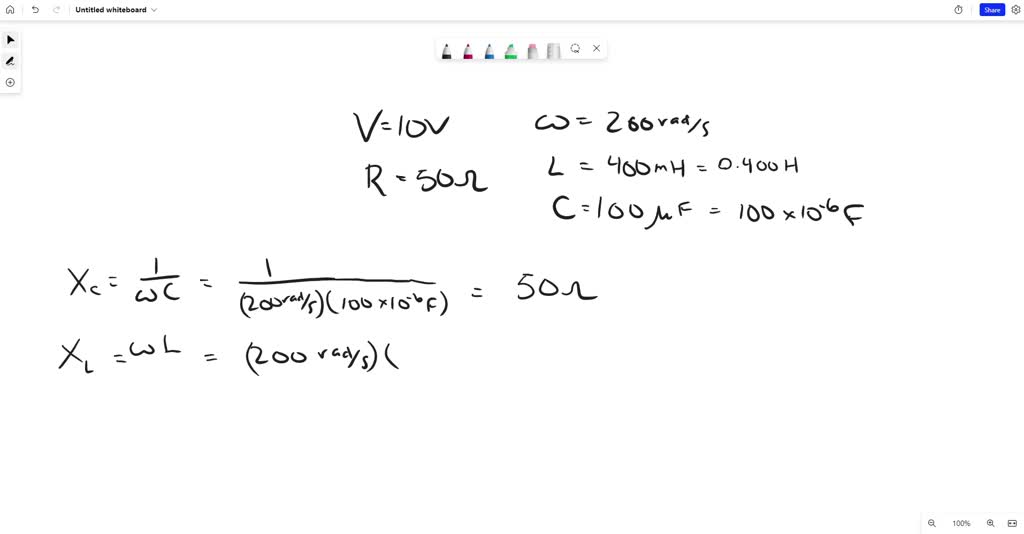 Untitled whiteboard
Share
V=10V
ω = 200 rad/s
R = 50Ω
L = 400mH = 0.400H
C = 100 μF = 100 × 10⁻⁶ F
X_C = 1/(ωC) = 1/((200 rad/s)(100 × 10⁻⁶ F)) = 50Ω
X_L = ωL = (200 rad/s)(
100%